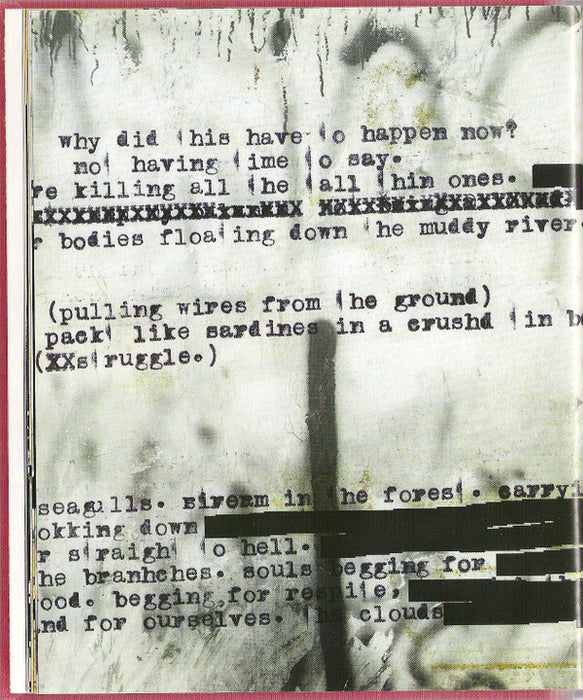 why did this have to happen now?
not having time to say.
re killing all the tall thin ones.
r bodies floating down the muddy river.
(pulling wires from the ground)
packt like sardines in a crushd tin bo
(XXstruggle.)
seagulls. in the forest. carryi
okking down
r straight to hell.
he branhches. souls begging for
ood. begging,for respite,
nd for ourselves. the clouds